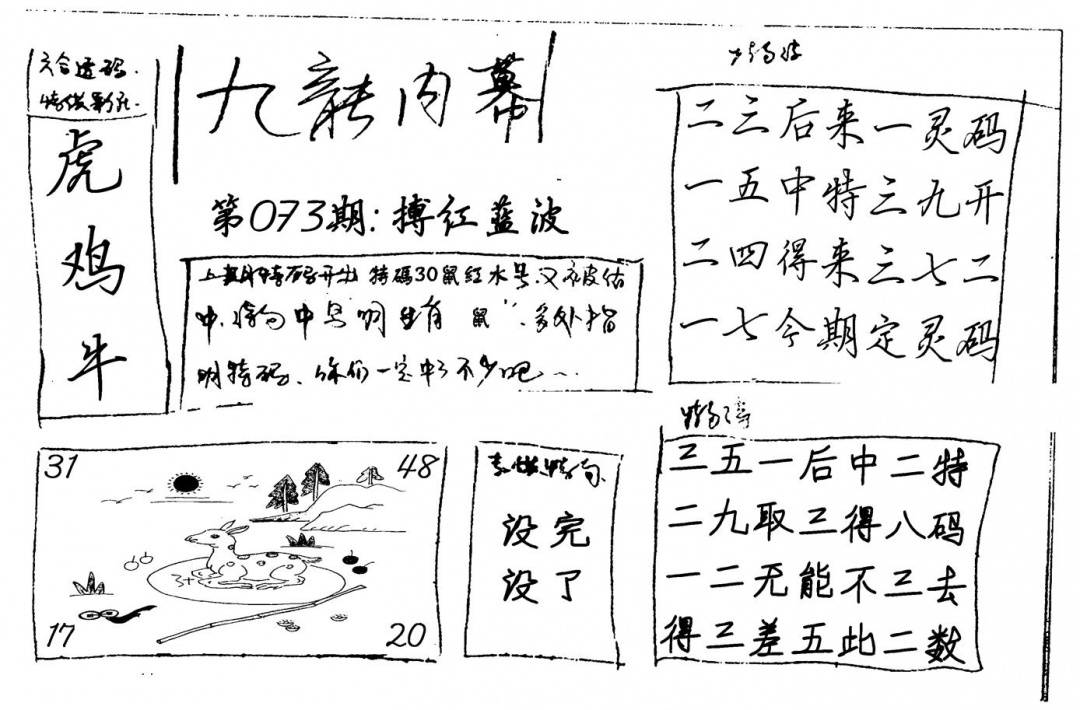 六合透码
虎
鸡
牛
九龍内幕
第073期:搏红蓝波
上期特码开出 特碼30鼠红水号又被估
中, 中号明生肖 鼠", 多处指
明特码、你们一定中了不少吧
二三后来一灵码
一五中特三九开
二四得来三七二
一七今期定灵码
31
48
3+
17
20
没完
没了
三五一后中二特
二九取三得八码
一二无能不三去
得三差五此二数